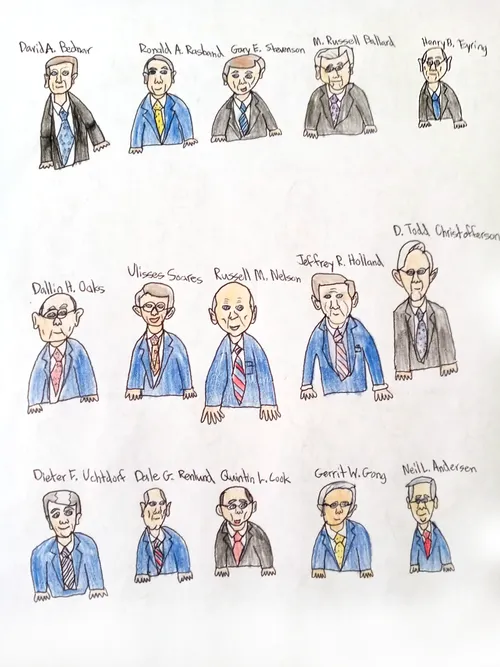 David A. Bednar
Ronald A. Rasband
Gary E. Stevenson
M. Russell Ballard
Henry B. Eyring
D. Todd Christofferson
Dallin H. Oaks
Ulisses Soares
Russell M. Nelson
Jeffrey R. Holland
Dieter F. Uchtdorf
Dale G. Renlund
Quintin L. Cook
Gerrit W. Gong
Neil L. Andersen